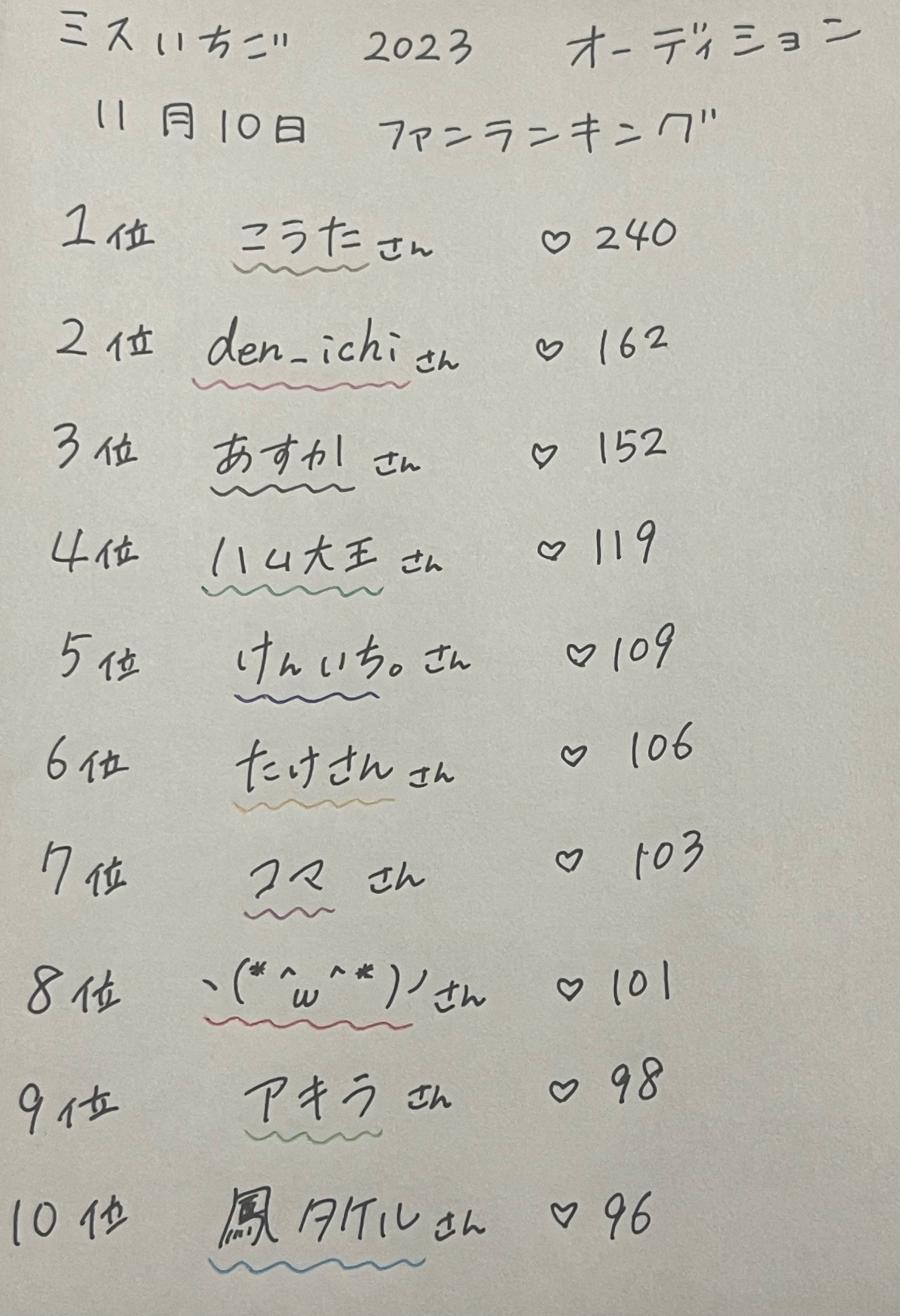 ミスいちご 2023 オーディション
11月10日 ファンランキング
1位 こうたさん ♡ 240
2位 den_ichiさん ♡ 162
3位 あすかさん ♡ 152
4位 ハム大王さん ♡ 119
5位 けんいち。さん ♡ 109
6位 たけさんさん ♡ 106
7位 コマさん ♡ 103
8位 ヽ(*^ω^*)ノさん ♡ 101
9位 アキラさん ♡ 98
10位 鳳タケルさん ♡ 96